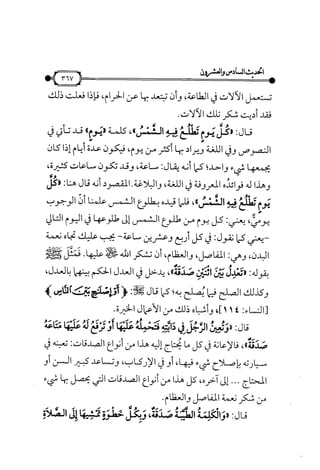 الحديث السادس والعشرون
٣٦٧
تستعمل الآلات في الطاعة، وأن تبتعد بها عن الحرام، فإذا فعلت ذلك
فقد أديت شكر تلك الآلات.
قال: «كُلَّ يَوم تَطْلُعُ فِيهِ الشَّمْسُ»، كلمة «يَوم» قد تأتي في
النصوص وفي اللغة ويراد بها أكثر من يوم، فيكون عدة أيام إذا كان
يجمعها شيء واحد؛ كما أنه يقال: ساعة، وقد تكون ساعات كثيرة،
وهذا له فوائده المعروفة في اللغة، والبلاغة. المقصود أنه قال هنا: «كُلَّ
يَوم تَطْلُعُ فِيهِ الشَّمْسُ»، فلما قيده بطلوع الشمس علمنا أنَّ الوجوب
يومي، يعني: كل يوم من طلوع الشمس إلى طلوعها في اليوم التالي
-يعني كما نقول: في كل أربع وعشرين ساعة- يجب عليك تجاه نعمة
البدن، وهي: المفاصل، والعظام، أن تشكر الله عليها. فمَثَّل ﷺ
بقوله: «تَعْدِلُ بَيْنَ اثْنَيْنِ صَدَقَةٌ»، يدخل في العدل الحكم بينهما بالعدل،
وكذلك الصلح فيما يُصلح به؛ كما قال ﷻ: ﴿أَوْ إِصْلَاحٍ بَيْنَ النَّاسِ﴾
[النساء: ١١٤]، وأشباه ذلك من الأعمال الخيرة.
قال: «وَتُعِينُ الرَّجُلَ فِي دَابَّتِهِ فَتَحْمِلُهُ عَلَيْهَا أَوْ تَرْفَعُ لَهُ عَلَيْهَا مَتَاعَهُ
صَدَقَةٌ»، فالإعانة في كل ما يُحتاج إليه هذا من أنواع الصدقات: تعينه في
سيارته بإصلاح شيء فيها، أو في الإركاب، وتساعد كبير السن أو
المحتاج ... إلى آخره، كل هذا من أنواع الصدقات التي يحصل بها شيء
من شكر نعمة المفاصل والعظام.
قال: «وَالْكَلِمَةُ الطَّيِّبَةُ صَدَقَةٌ، وَبِكُلِّ خَطْوَةٍ تَمْشِيهَا إِلَى الصَّلَاةِ